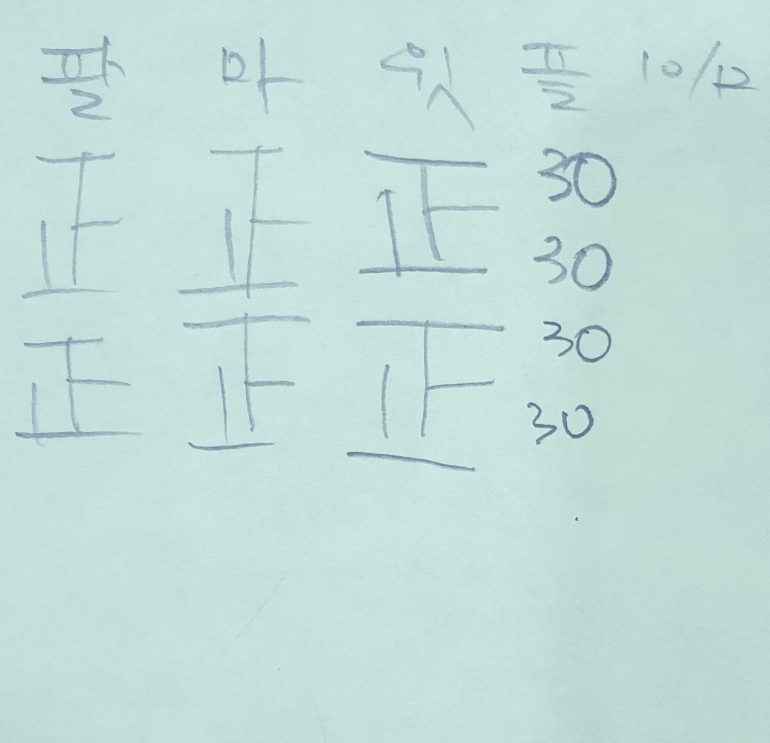 팔 마 윗 플 10/12
正 正 正 30
30
正 正 正 30
30